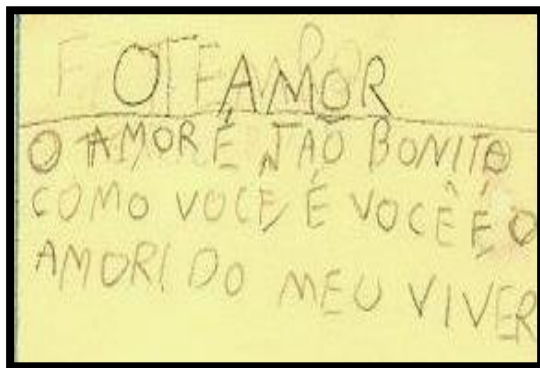 O AMOR
O AMOR É TÃO BONITO
COMO VOCE É VOCÊ É O
AMOR! DO MEU VIVER